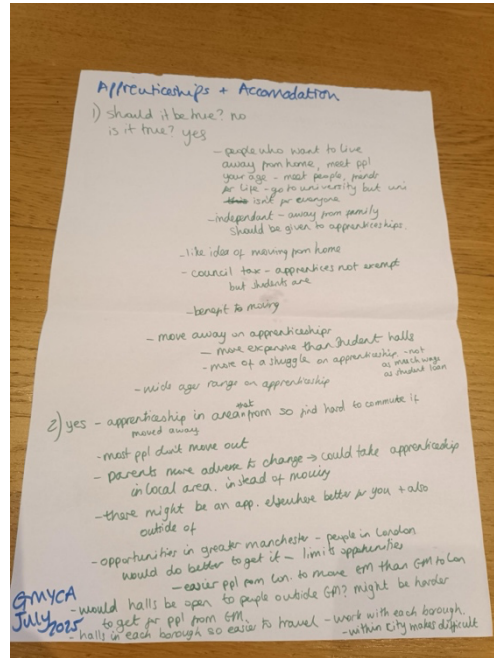 Apprenticeships + Accomodation
1) should it be true? no
is it true? yes
- people who want to live
away from home, meet ppl
your age - meet people, friends
for life - go to university but uni
isn't for everyone
- independant - away from family
should be given to apprenticeships.
- like idea of moving from home
- council tax - apprentices not exempt
but students are
- benefit to moving
- move away on apprenticeships
- more expensive than student halls
- more of a struggle on apprenticeship - not
as much wage
as student loan
- wide ages range on apprenticeship
2) yes - apprenticeship in area not from so find hard to commute if
moved away
- most ppl don't move out
- parents more adverse to change → could take apprenticeship
in local area. instead of moving
- there might be an app. elsewhere better for you + also
outside of
- opportunities in greater manchester - people in London
would do better to get it - limits opportunities
- easier ppl from Lon. to move GM than GM to Lon
- would halls be open to people outside GM? might be harder
to get for ppl from GM.
- halls in each borough so easier to travel - work with each borough.
- within city makes difficult
GMYCA
July
2025